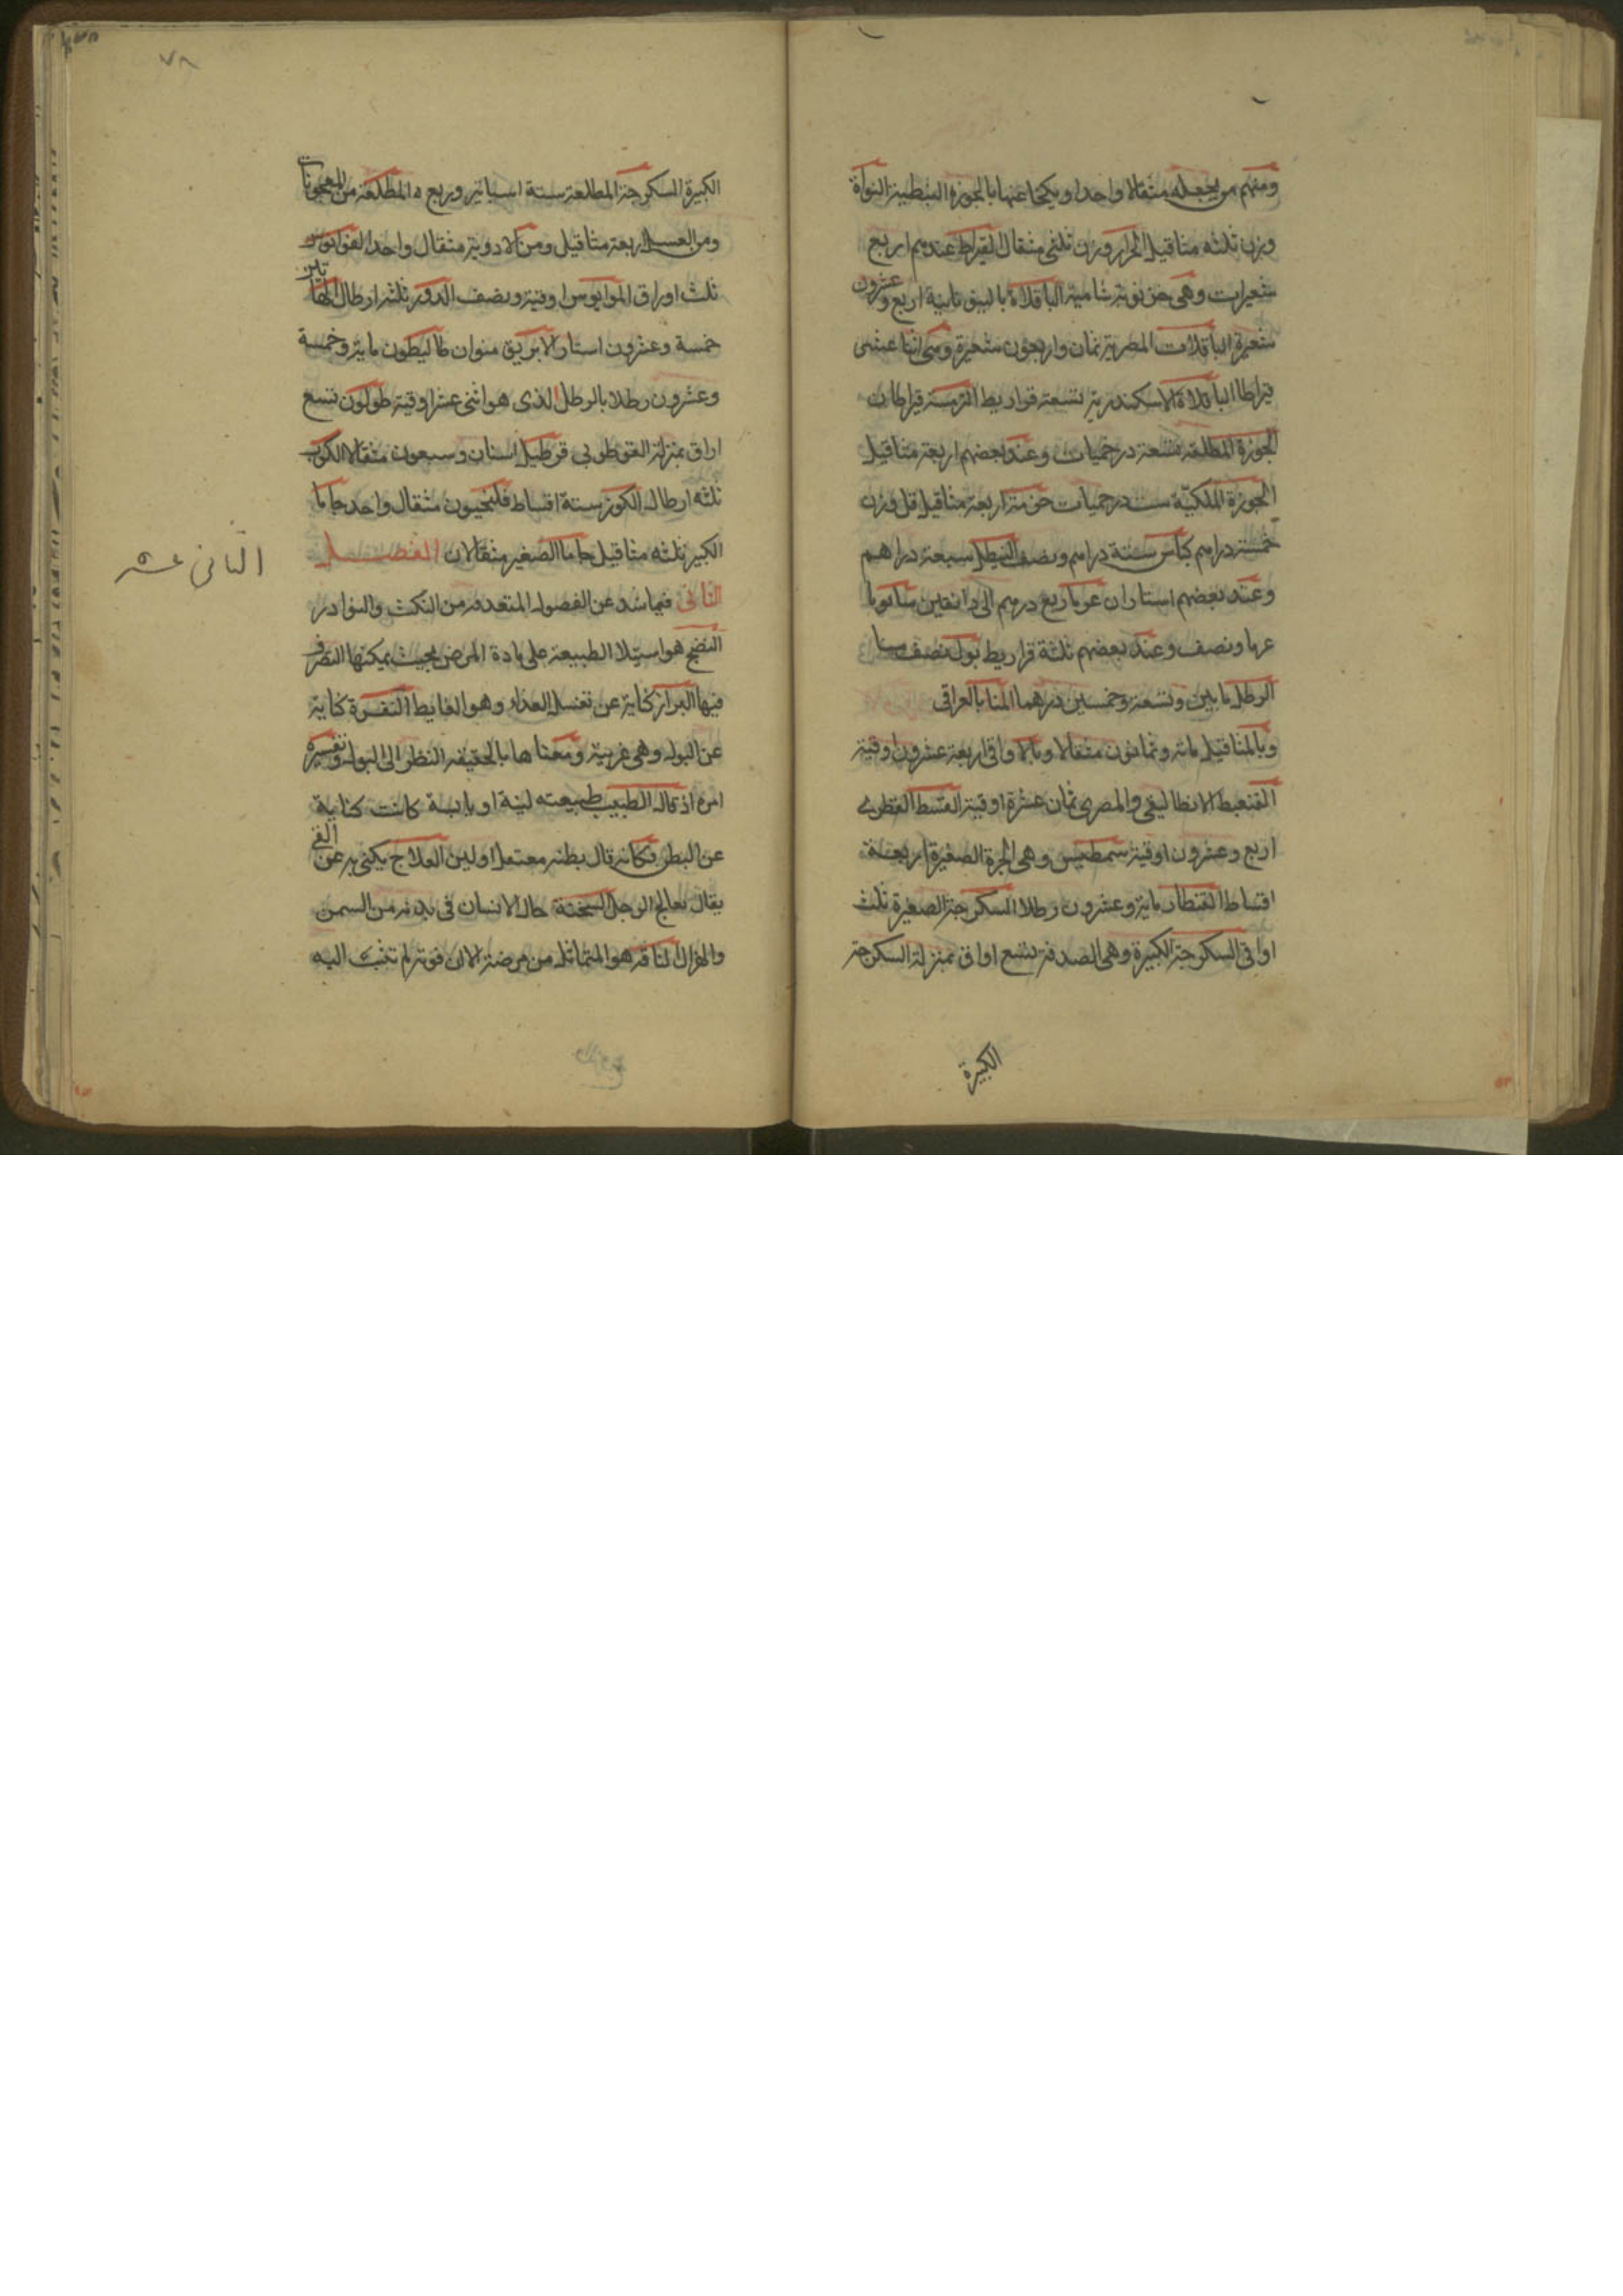 ومنهم من يجعله مثقالا واحدا ويكيلا عنها بالجوزة النبطية النواة
وزن ثلثه مثاقيل وزن ثلثى مثقال القيراط عندهم اربع
شعيرات وهى خرنوبة شامية الباقلاة اربع وعشرون
شعيرة الباقلات المصرية ثمان واربعون شعيرة وهى اثنا عشر
قيراطا الباقلاة الاسكندرية تسعة قراريط الترمسة قيراطان
الجوزة المطلقه تسعة درخميات وعند بعضهم اربعة مثاقيل
الجوزة الملكيّة ست درخميات حزمة اربعة مثاقيل قل وزن
خمسة دراهم كاس ستة دراهم ونصف النيطل سبعة دراهم
وعند بعضهم استاران ربع درهم الى دانقين
ونصف وعند بعضهم ثلثة قراريط نصف
الرطل مايين وتسعة وخمسين درهما المنا بالعراقى
وبالمثاقيل مائة وثمانون مثقالا وبالاواقى اربعة عشرون اوقية
الانطاليقى والمصرى ثمان عشرة اوقية القسط
اربع وعشرون اوقية وهى الجرة الصغيرة اربعة
اقساط القنطار ماية وعشرون رطلا السكرجة الصغيرة ثلث
اواقى السكرجة الكبيرة وهى الصدفة تسع اواق بمنزلة السكرجة
الكبيرة
٧٨
الكبيرة السكرجة المطلقة ستة اساتير وربع المطلقة من المعجونات
ومن العسل اربعة مثاقيل ومن الادوية مثقال واحد
ثلث اوراق اوقية ونصف الدورق ثلثة ارطال
خمسة وعشرون استار الابريق منوان طاليطون ماية وخمسة
وعشرون رطلا بالرطل الذى هو اثنى عشر اوقية طولون تسع
اواق بمنزلة القوطولى اثنان وسبعون مثقالا الكوب
ثلثه ارطال الكوز ستة اقساط فلنجيون مثقال واحد حاما
الكبير ثلثه مثاقيل حاما الصغير مثقالان الفصل
الثانى عشر
الثانى فيما شد عن الفصول المتقدمة من النكت والنوادر
النضج هو استيلا الطبيعة على مادة المرض بحيث يمكنها التصرف
فيها البراز كناية عن تفسل الغذاء وهو الغايط التفسرة كناية
عن البول وهى عربية ومعناها بالحقيقة النظر الى البول وتفسيره
امره اذ قال الطبيب طبيعته لينة او يابسة كانت كناية
عن البطن فكانه قال بطنه معتقل او لين العلاج يكنى به عن القي
يقال تعالج الرجل السخنة حال الانسان فى بدنه من السمن
والهزال الناقه هو المتماثل من مرضة الا ان قوته لم تثب اليه